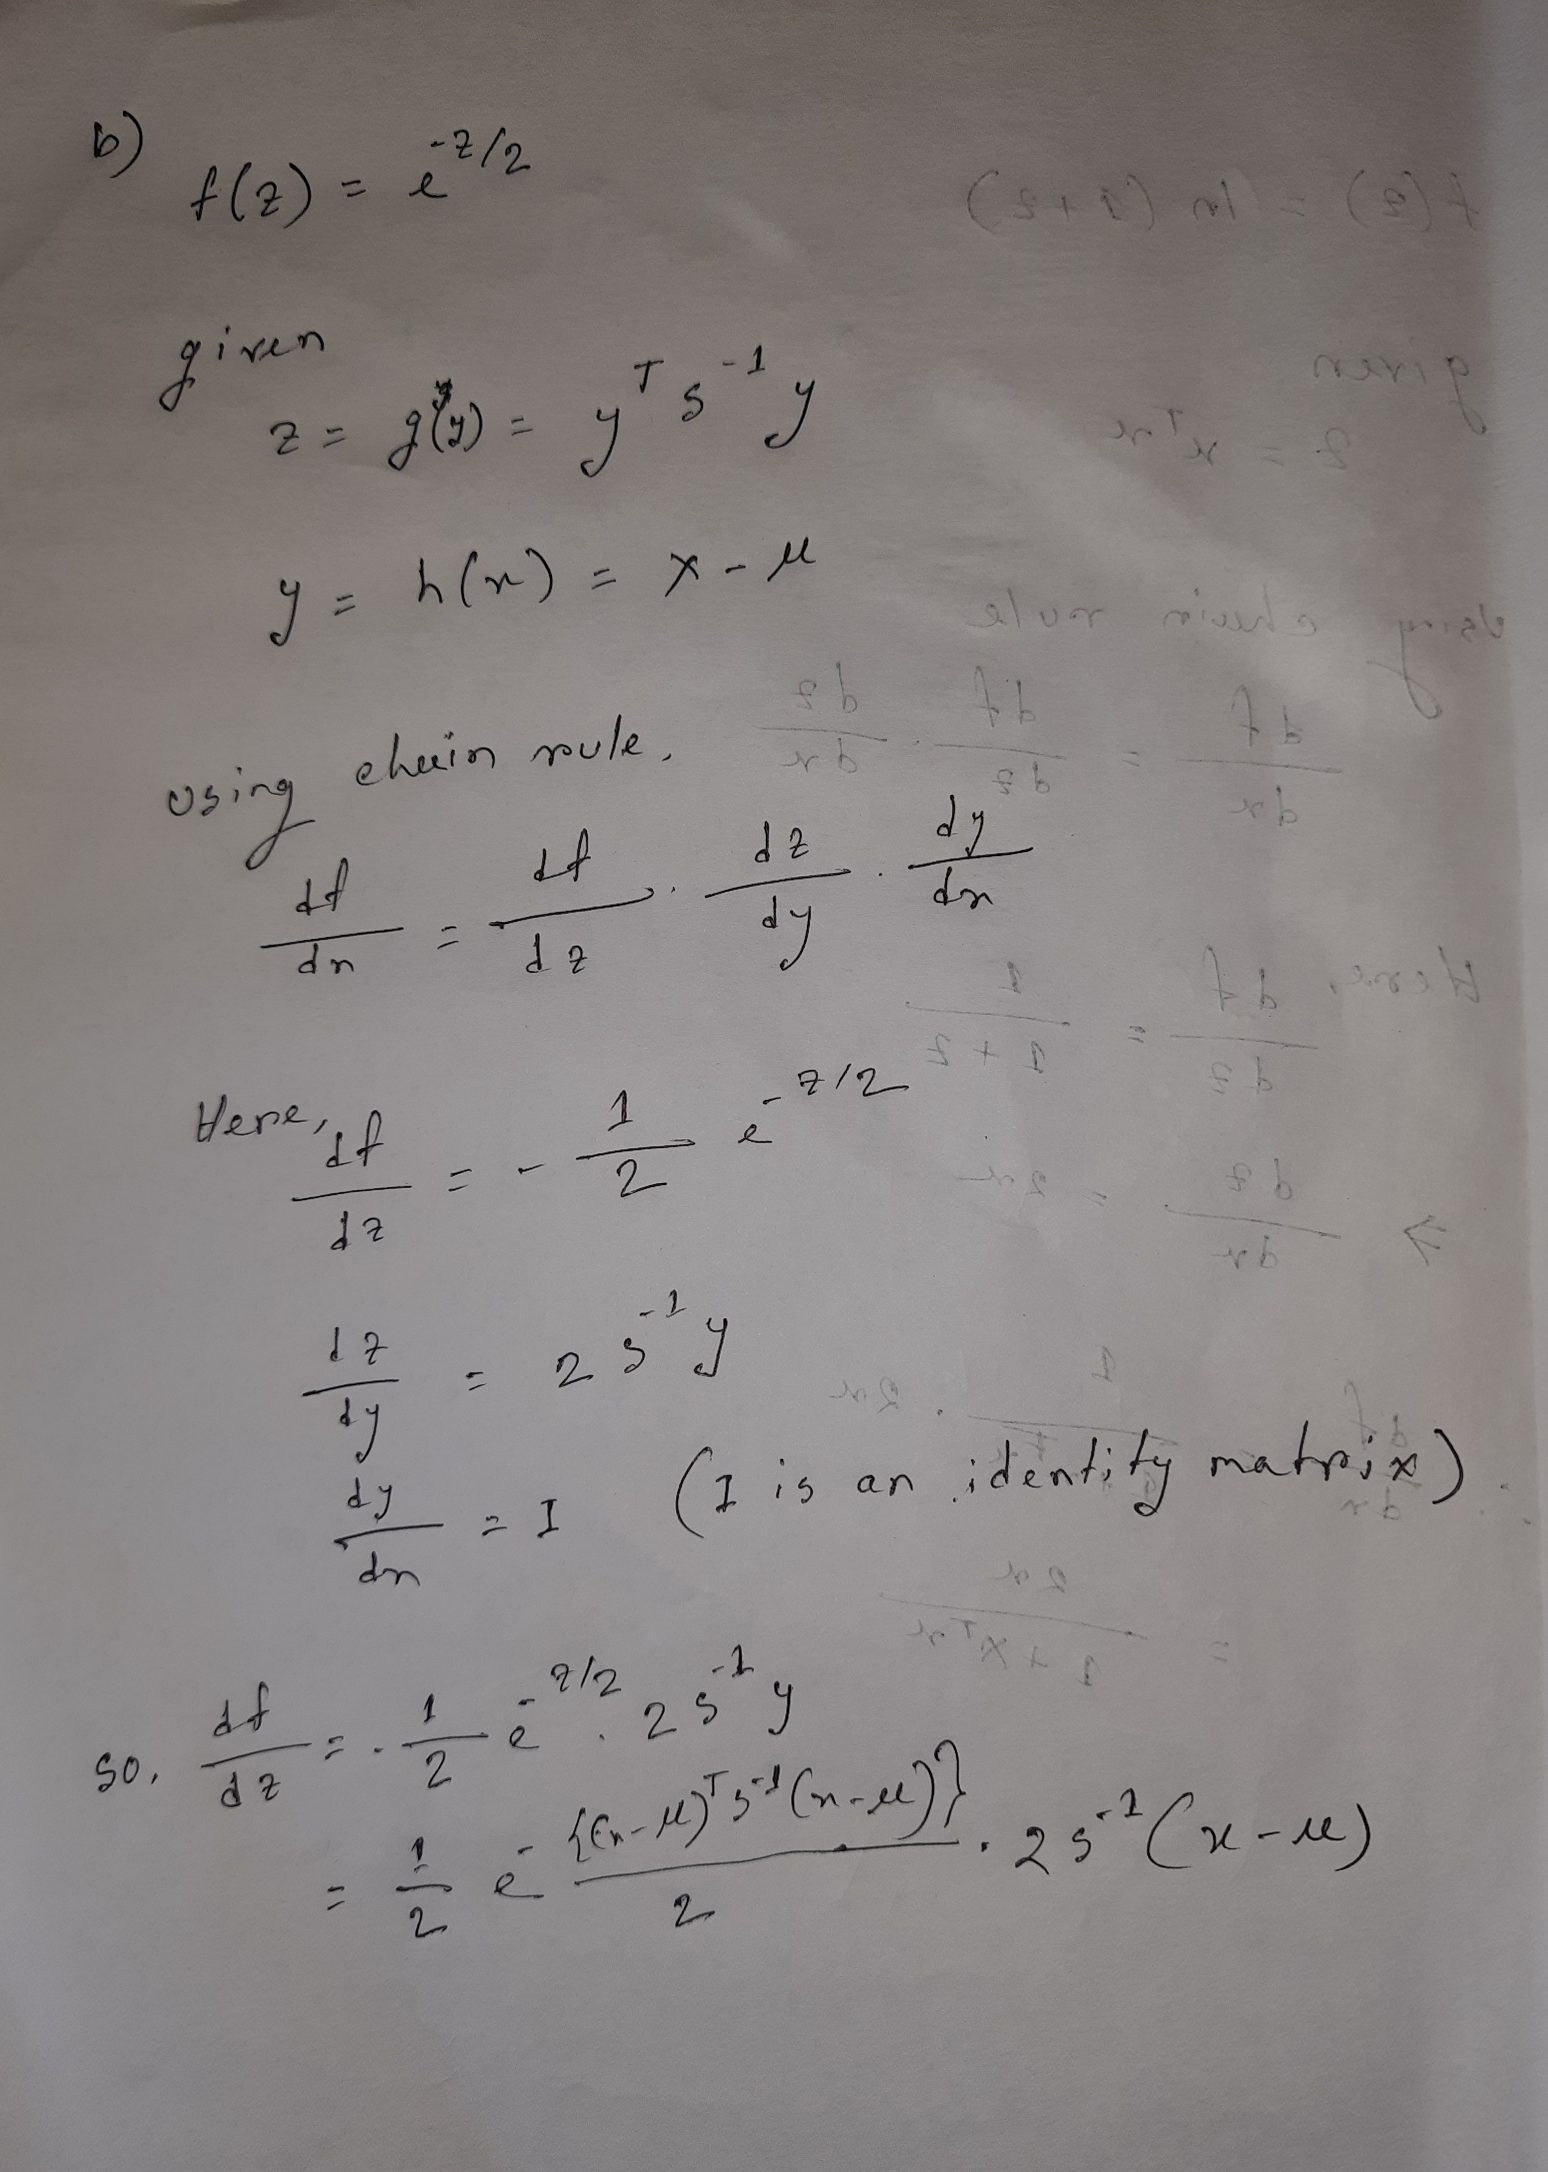 b)
f(z) = e^{-z/2}
given
z = g(y) = y^T s^{-1} y
y = h(x) = x - μ
using chain rule,
df/dx = df/dz . dz/dy . dy/dx
Here, df/dz = - 1/2 e^{-z/2}
dz/dy = 2 s^{-1} y
dy/dx = I (I is an identity matrix)
so, df/dz = - 1/2 e^{-z/2} . 2 s^{-1} y
= 1/2 e^{-{(x-μ)^T s^{-1} (x-μ)}/2} . 2 s^{-1} (x-μ)